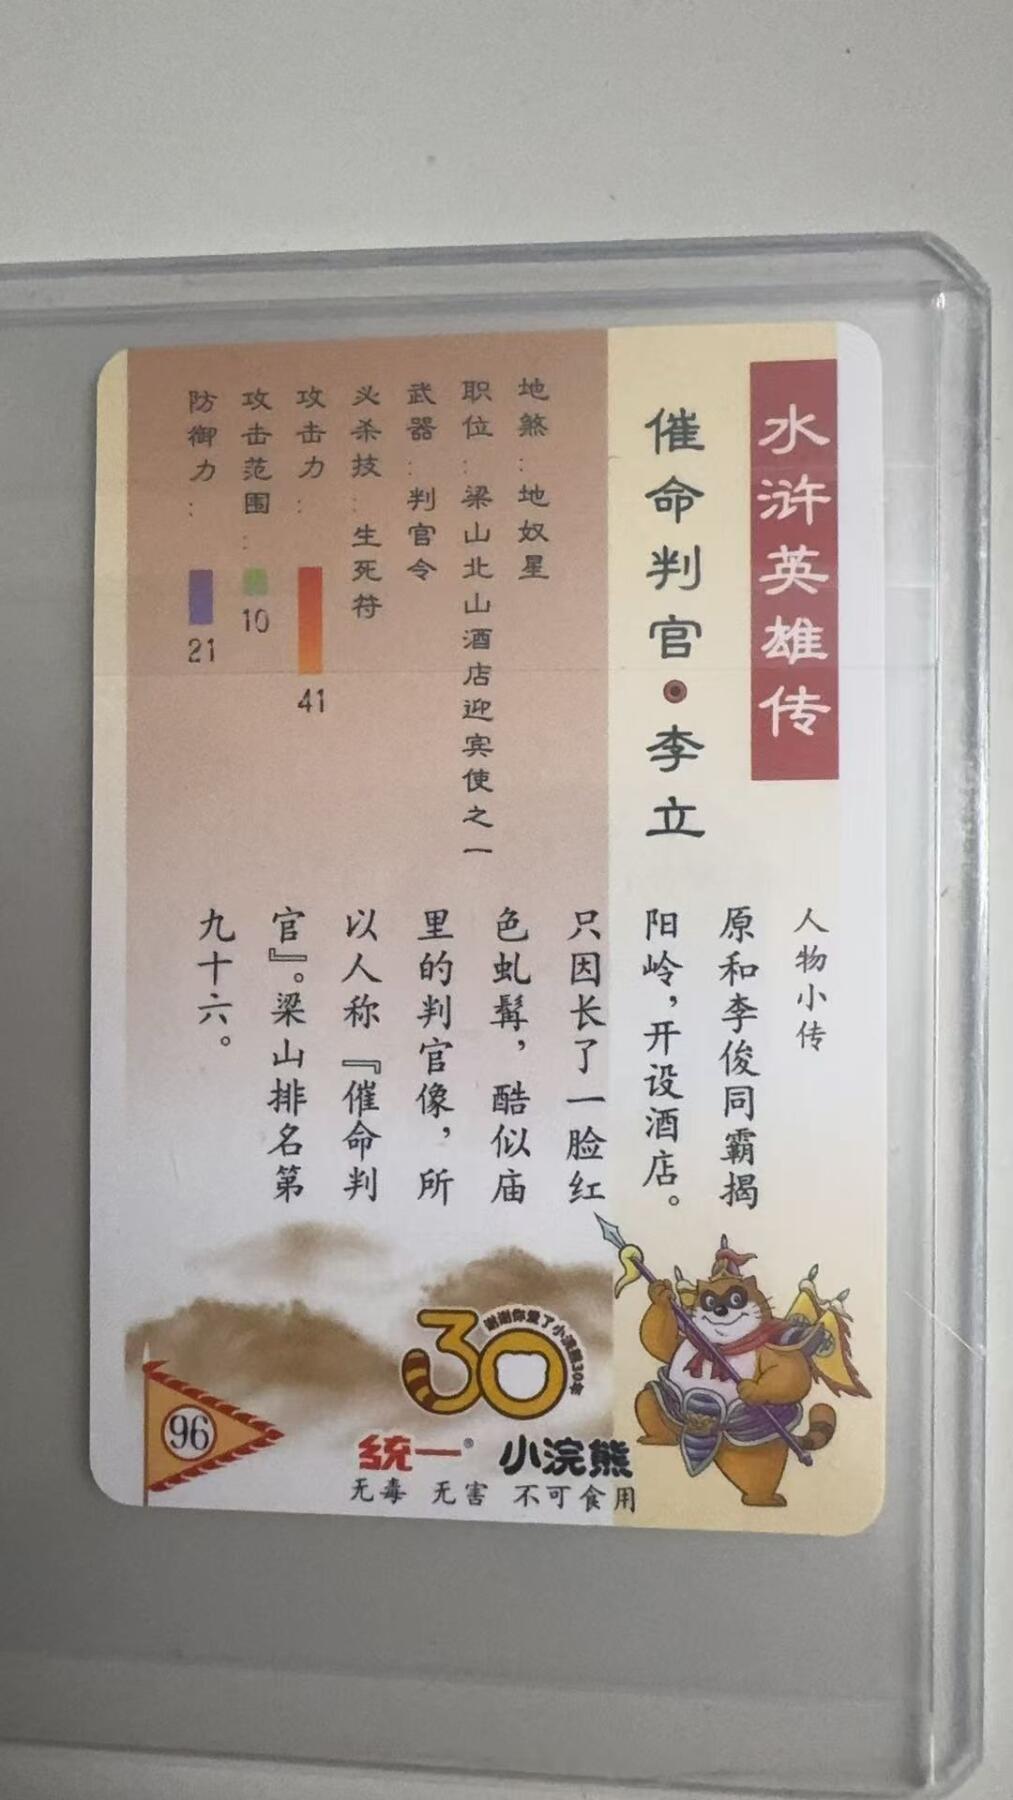 水浒英雄传
催命判官·李立
地煞：地奴星
职位：梁山北山酒店迎宾使之一
武器：判官令
必杀技：生死符
攻击力：41
攻击范围：10
防御力：21
人物小传
原和李俊同霸揭
阳岭，开设酒店。
只因长了一脸红
色虬髯，酷似庙
里的判官像，所
以人称『催命判
官』。梁山排名第
九十六。
谢谢你爱了小浣熊30年
30
统一® 小浣熊
无毒 无害 不可食用
96